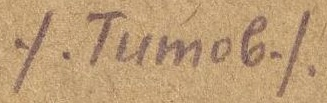 -/. Титов-/.